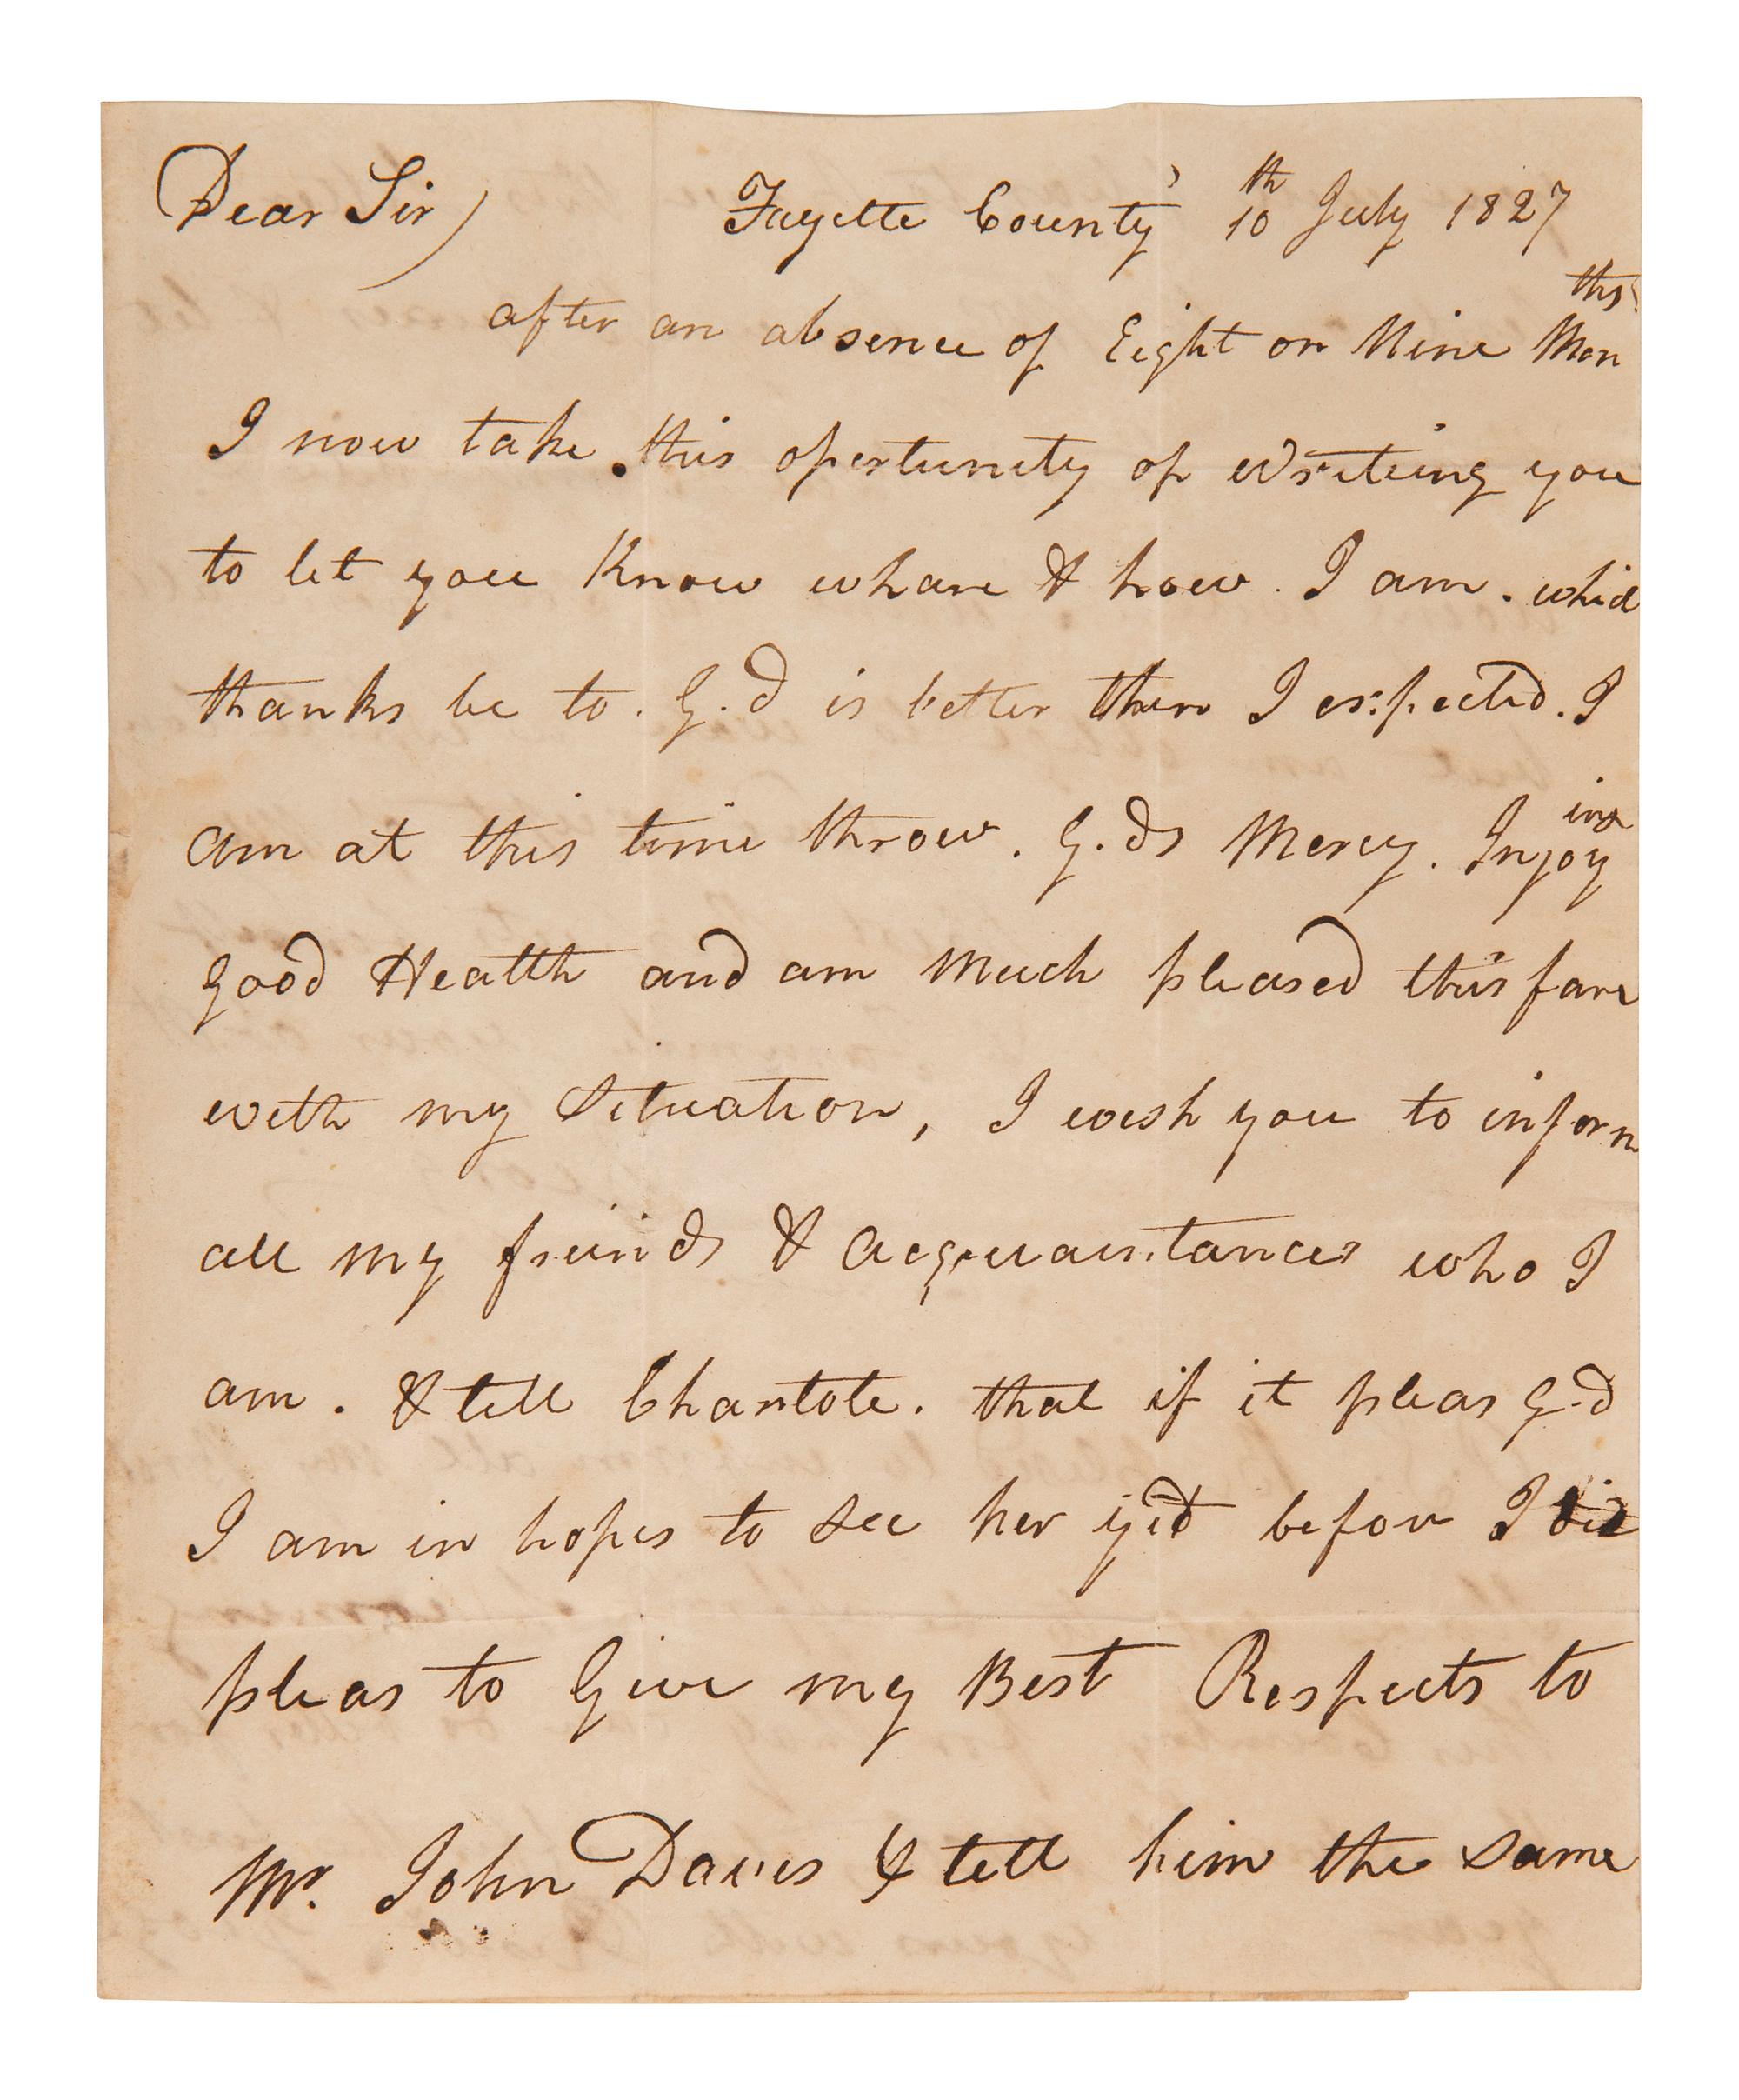 Dear Sir) Fayette County 10th July 1827
after an absence of Eight or Nine Months
I now take this opertunity of Writeing you
to let you Know whare & how . I am . whid
thanks be to . G.d is better then I expected . I
am at this time throw . G.ds Mercy . Injoying
good Health and am Much pleased this fare
with my Situation , I wish you to inform
all my freinds & acquaintances who I
am . & tell Charlote . that if it pleas G.d
I am in hopes to see her yid before I
pleas to Give my Best Respects to
Mr. John Davis & tell him the same